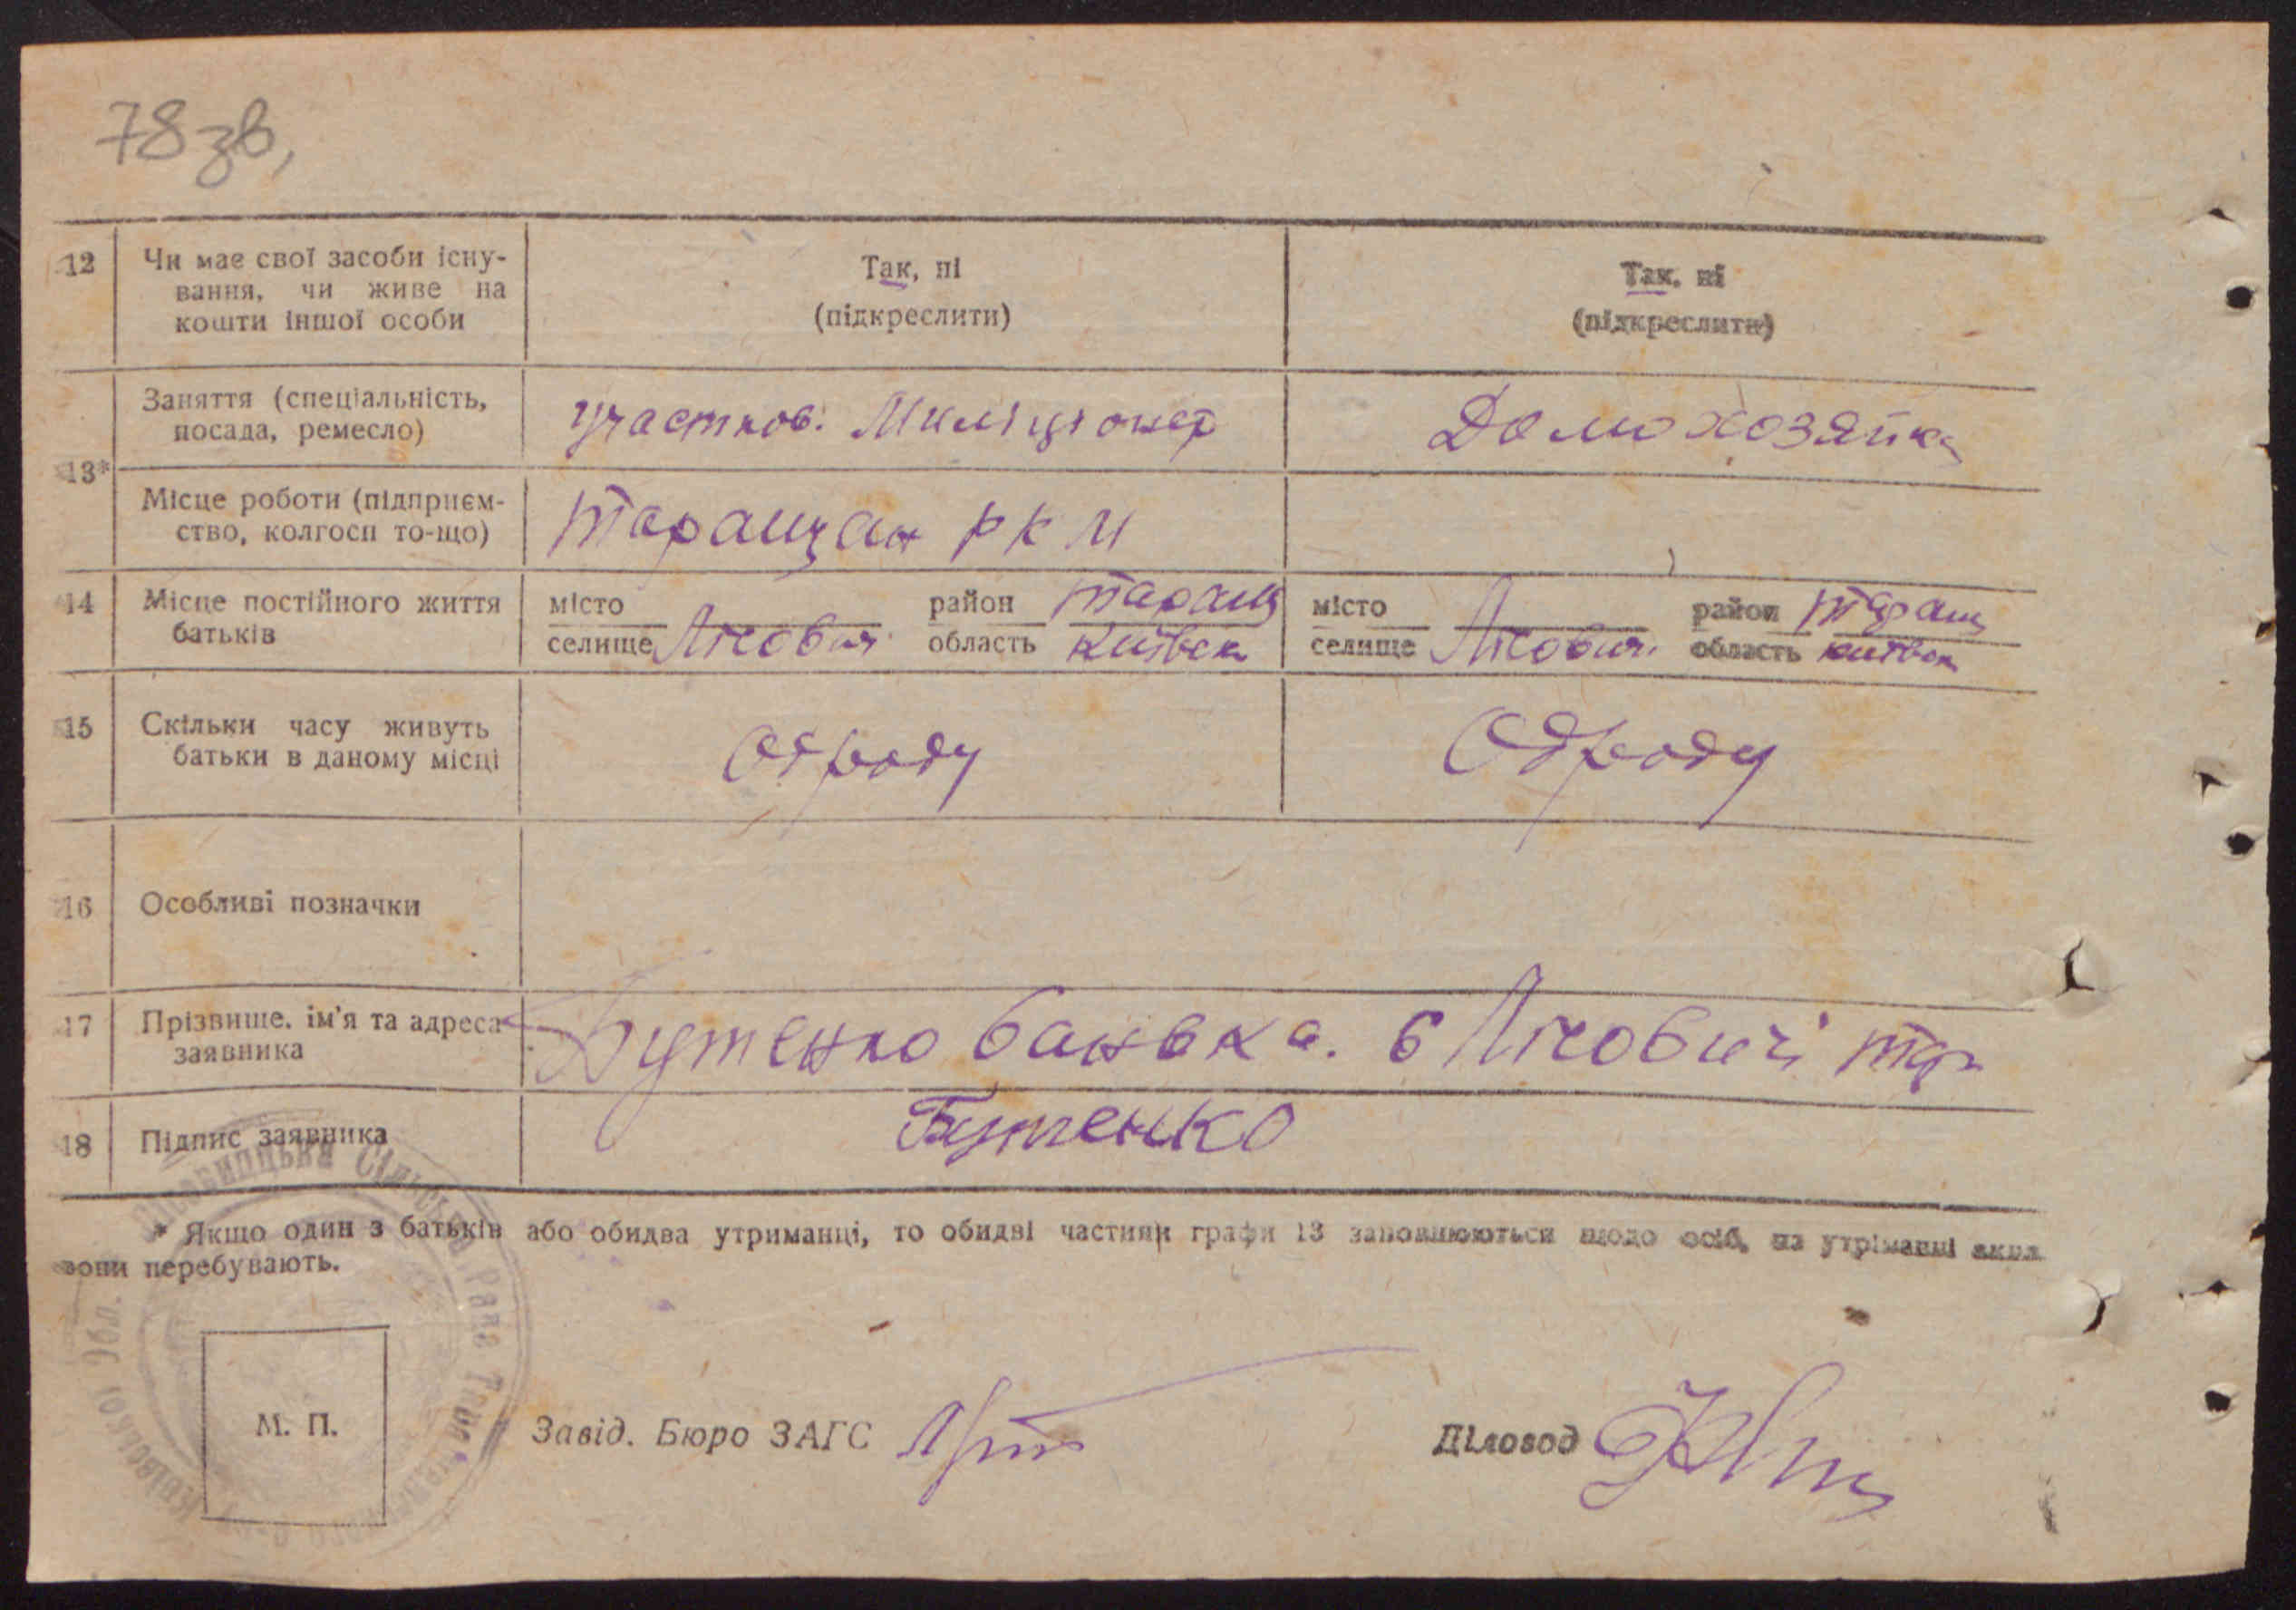 78 зв,
12 Чи має свої засоби існу- Так, ні Так. ні
вання, чи живе на (підкреслити) (підкреслити)
кошти іншої особи
13* Заняття (спеціальність, Участков: Миліціонер Домохозяйка
посада, ремесло)
Місце роботи (підприєм- Таращан Р К М
ство, колгосп то-що)
14 Місце постійного життя місто район Таращ місто район Таращ
батьків селище Лісович область Київск селище Лісович. область Київск
15 Скільки часу живуть Одроду Одроду
батьки в даному місці
16 Особливі позначки
17 Прізвище. ім'я та адреса Бутенко банька. с Лісовичі Тар
заявника
18 Підпис заявника Бутенко
* Якщо один з батьків або обидва утриманці, то обидві частини графи 13 заповнюються щодо осіб, на утріманні яких
вони перебувають.
Лісовицька Сільська Рада
Київської Обл.
М. П. Завід. Бюро ЗАГС Діловод